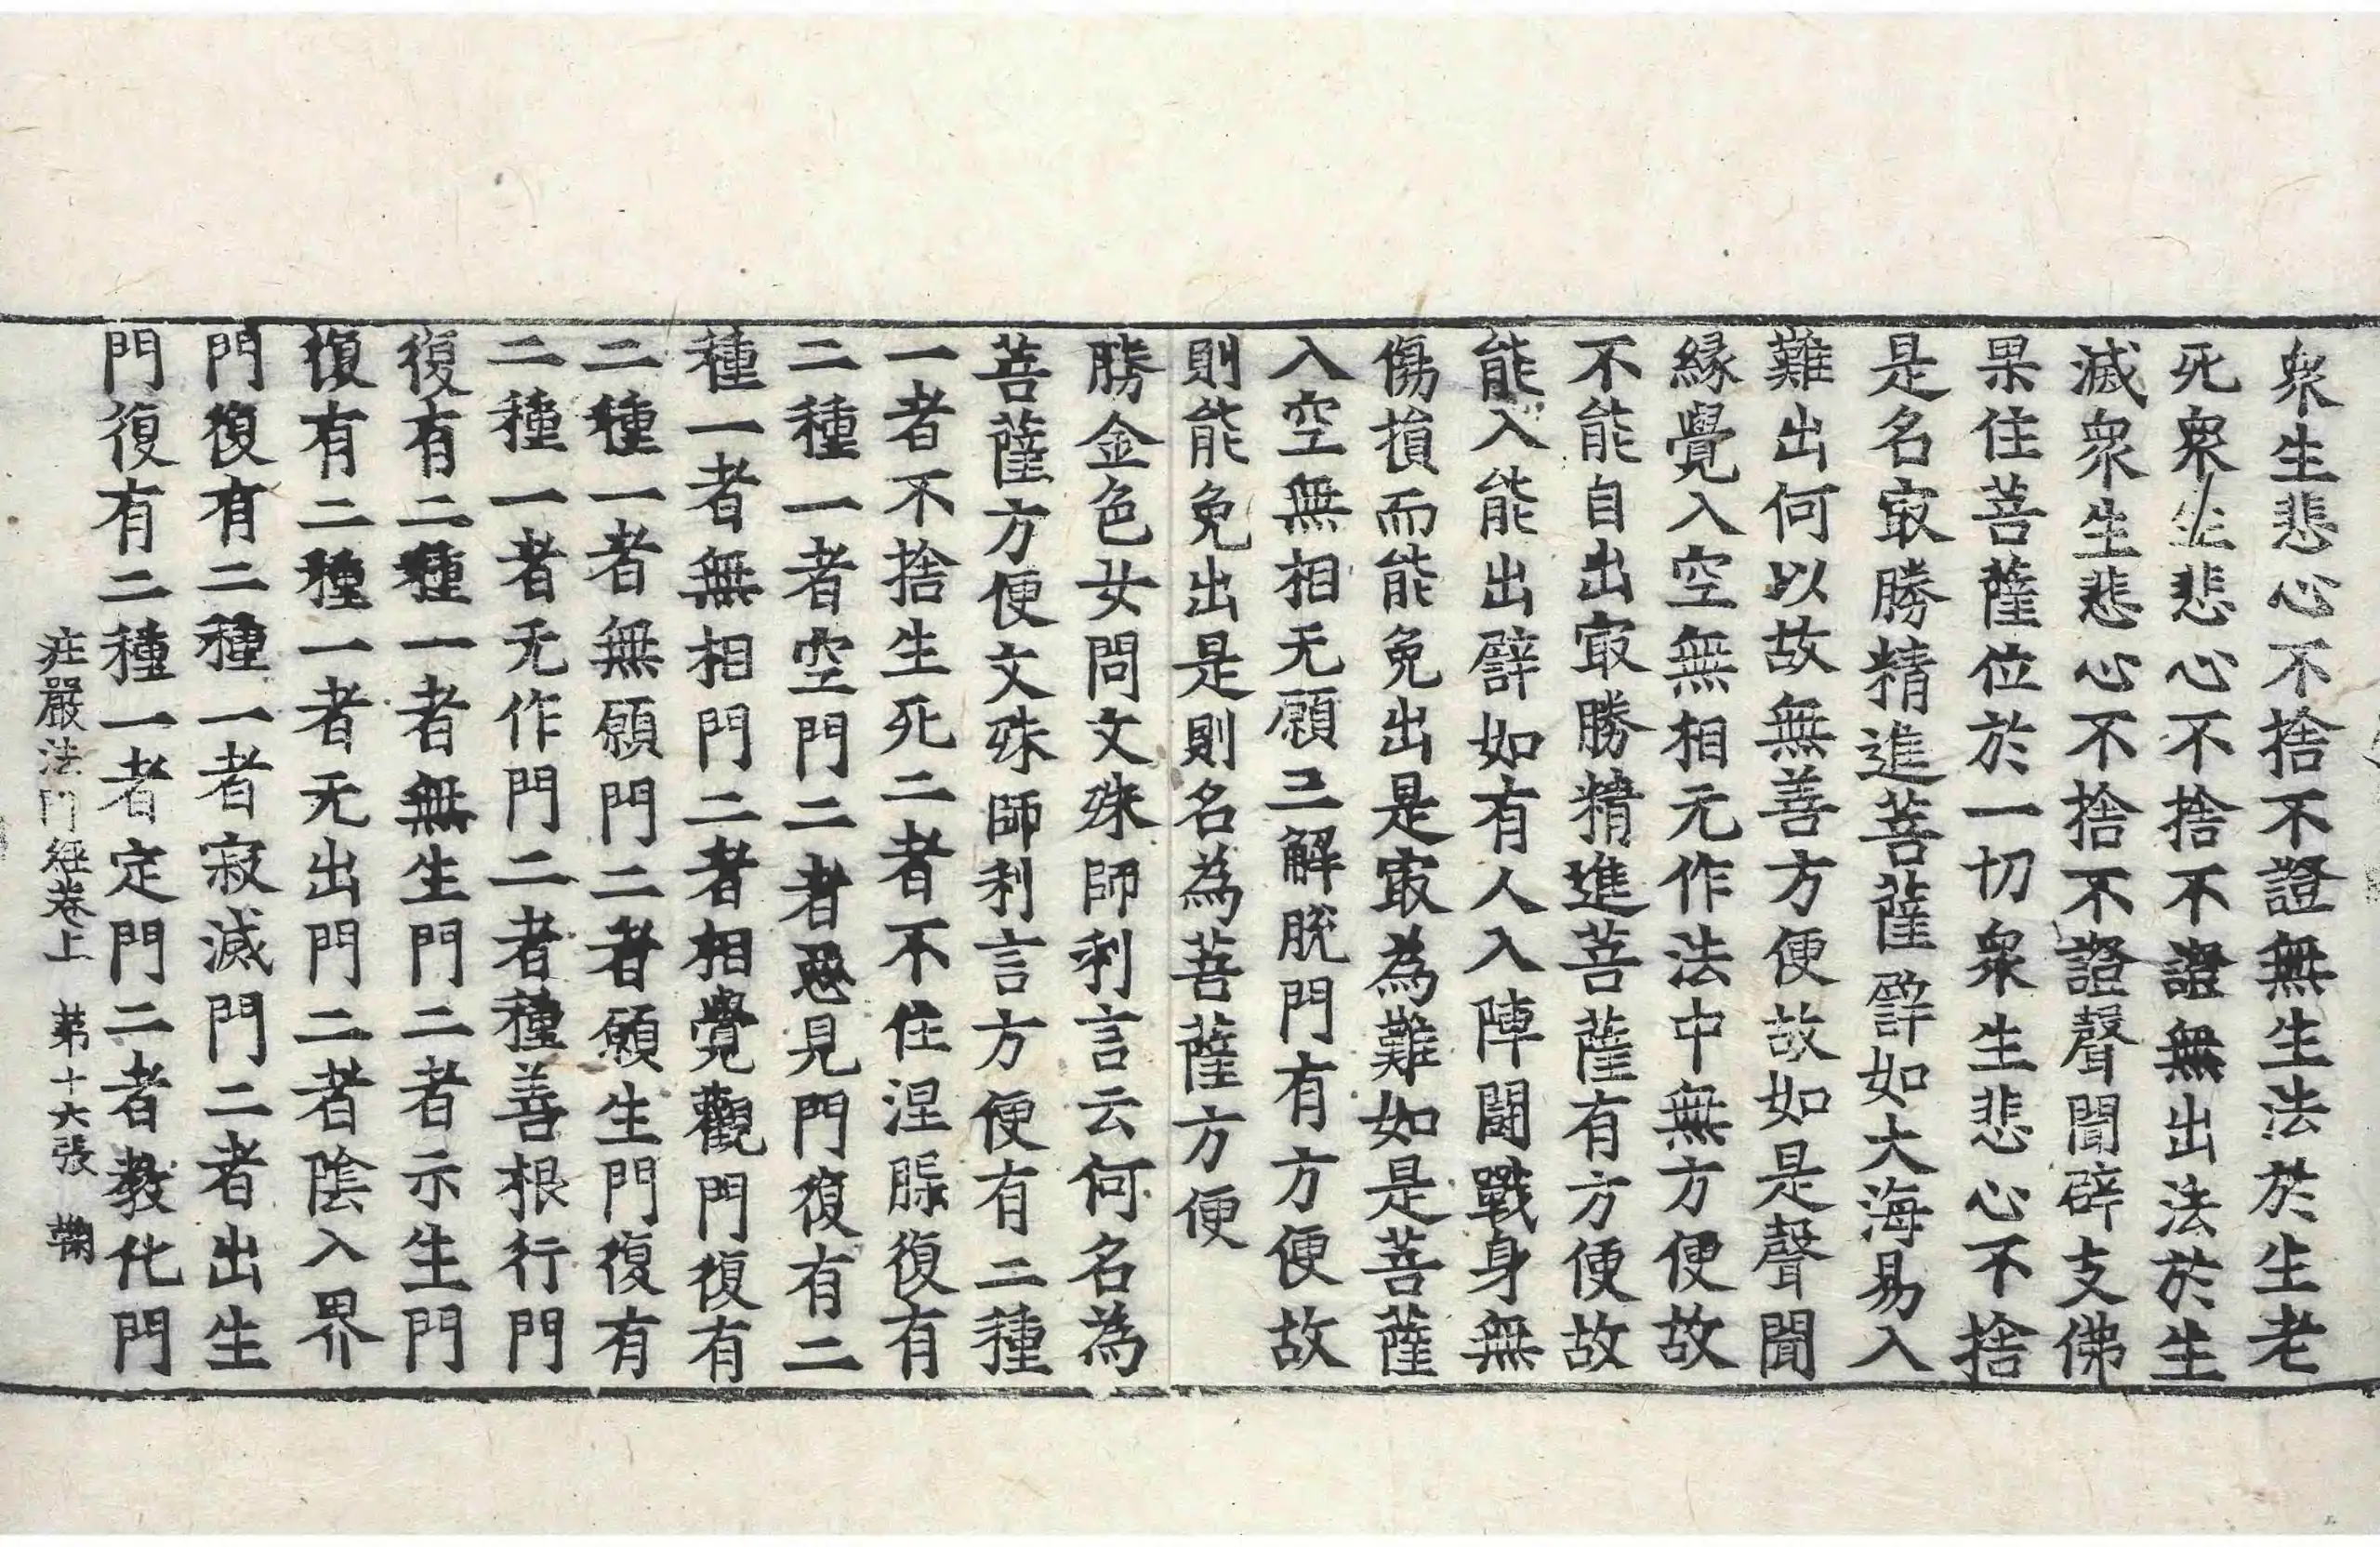 衆生悲心不捨不證無生法於生老
死衆生悲心不捨不證無出法於生
滅衆生悲心不捨不證聲聞辟支佛
果住菩薩位於一切衆生悲心不捨
是名㝡勝精進菩薩譬如大海易入
難出何以故無善方便故如是聲聞
緣覺入空無相无作法中無方便故
不能自出㝡勝精進菩薩有方便故
能入能出譬如有人入陣鬪戰身無
傷損而能免出是㝡為難如是菩薩
入空無相无願三解脫門有方便故
則能免出是則名為菩薩方便
勝金色女問文殊師利言云何名為
菩薩方便文殊師利言方便有二種
一者不捨生死二者不住涅槃復有
二種一者空門二者惡見門復有二
種一者無相門二者相覺觀門復有
二種一者無願門二者願生門復有
二種一者无作門二者種善根行門
復有二種一者無生門二者示生門
復有二種一者无出門二者陰入界
門復有二種一者寂滅門二者出生
門復有二種一者定門二者教化門
庄嚴法門經卷上 苐十六張 鞠